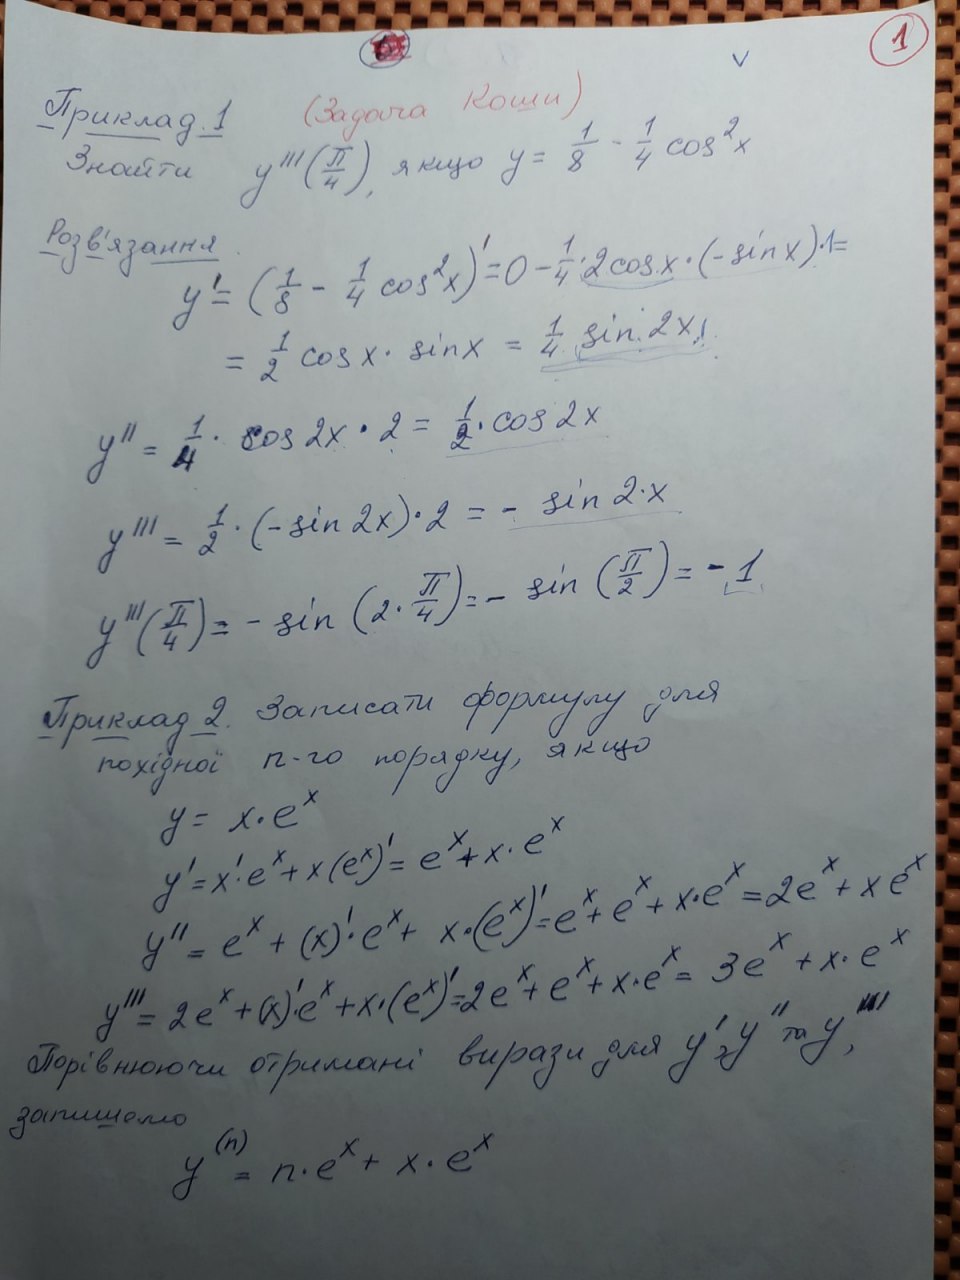 1
Приклад 1 (Задача Коши)
Знайти y'''(π/4), якщо y = 1/8 - 1/4 cos²x
Розв'язання
y' = (1/8 - 1/4 cos²x)' = 0 - 1/4 · 2cosx · (-sinx) · 1 =
= 1/2 cosx · sinx = 1/4 sin 2x
y'' = 1/4 · cos 2x · 2 = 1/2 · cos 2x
y''' = 1/2 · (-sin 2x) · 2 = - sin 2·x
y'''(π/4) = - sin (2 · π/4) = - sin (π/2) = - 1
Приклад 2. Записати формулу для
похідної n-го порядку, якщо
y = x · eˣ
y' = x' · eˣ + x (eˣ)' = eˣ + x · eˣ
y'' = eˣ + (x)' · eˣ + x · (eˣ)' = eˣ + eˣ + x · eˣ = 2eˣ + x eˣ
y''' = 2eˣ + (x)' · eˣ + x · (eˣ)' = 2eˣ + eˣ + x · eˣ = 3eˣ + x · eˣ
Порівнюючи отримані вирази для y', y'' та y''',
запишемо
y⁽ⁿ⁾ = n · eˣ + x · eˣ